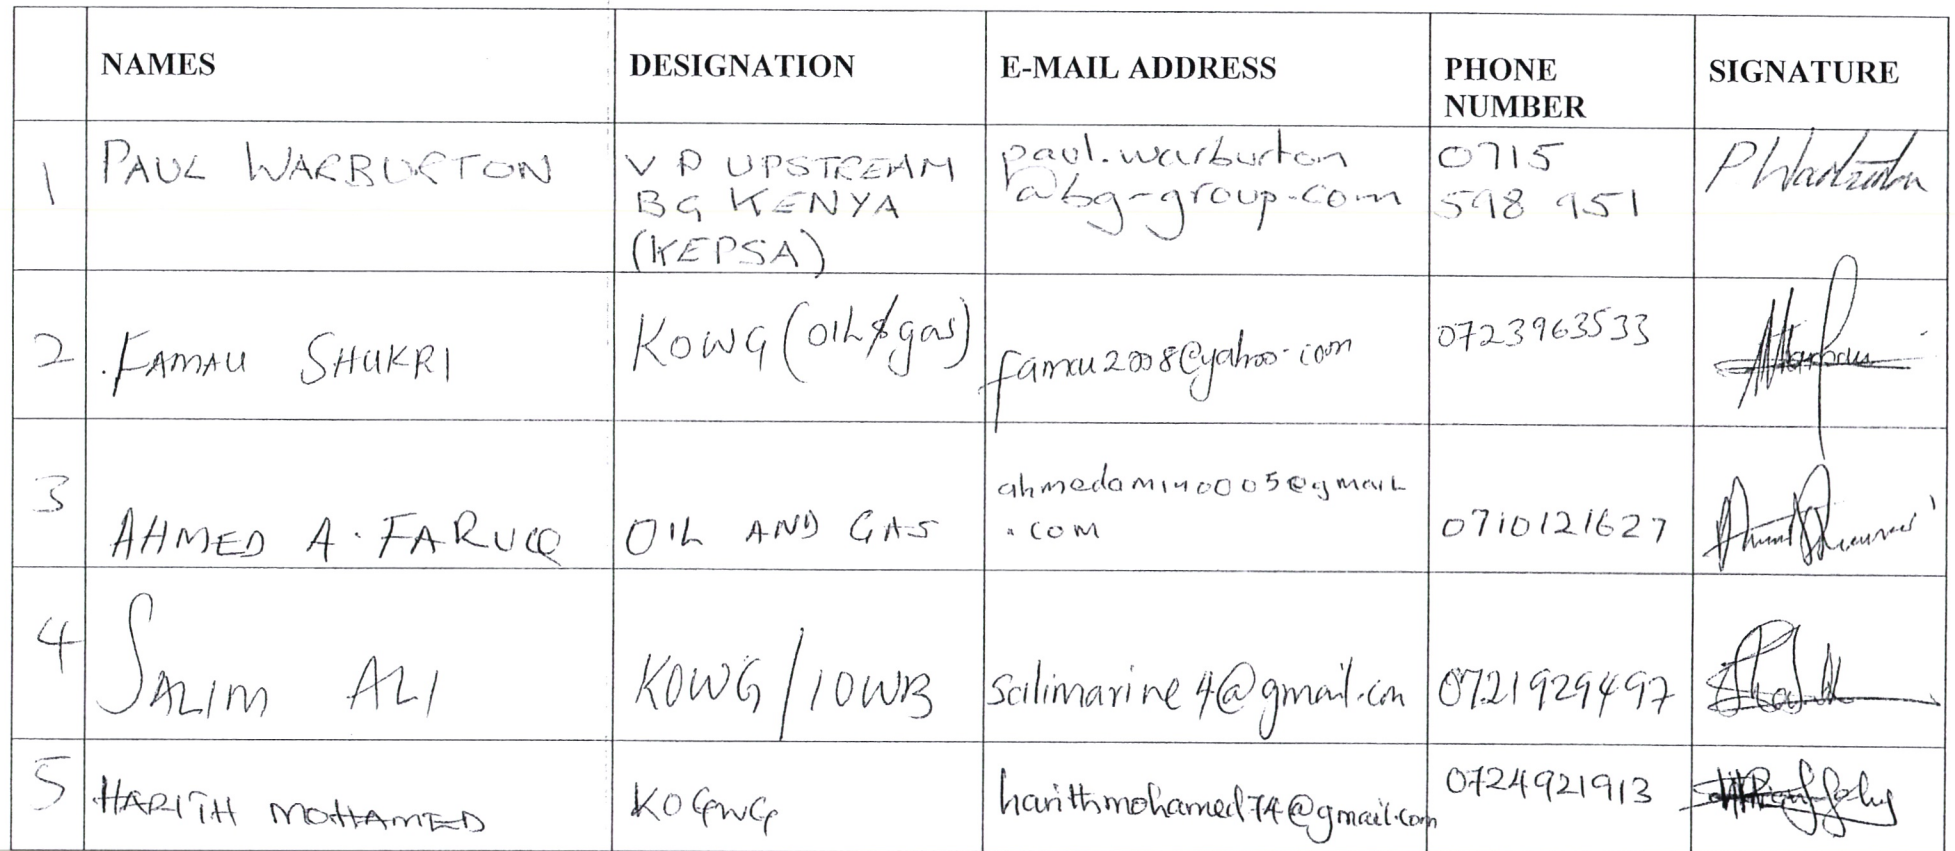 NAMES DESIGNATION E-MAIL ADDRESS PHONE NUMBER SIGNATURE
1 PAUL WARBURTON VP UPSTREAM BG KENYA (KEPSA) paul.warburton@bg-group.com 0715 598 951 PWarburton
2 FAMAU SHUKRI KOWG (OIL & gas) famau2008@yahoo.com 0723963533
3 AHMED A. FARUQ OIL AND GAS ahmedamin0005@gmail.com 0710121627
4 SALIM ALI KOWG/IOWB salimarine4@gmail.com 0721929497
5 HARITH MOHAMED KOGWG harithmohamed74@gmail.com 0724921913